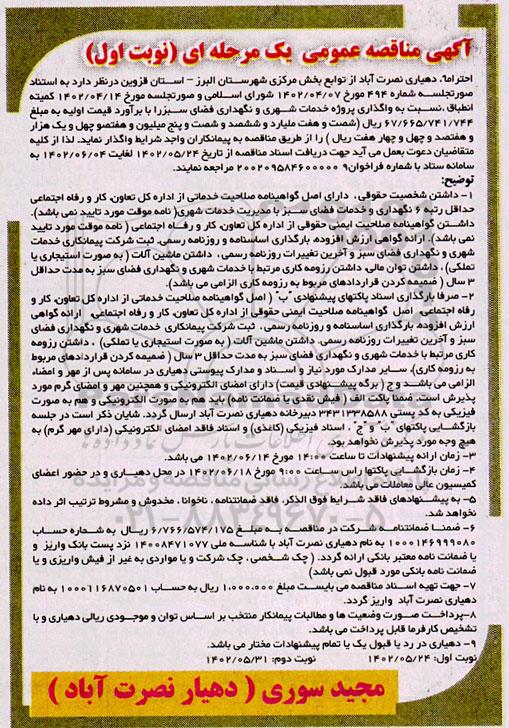 آگهی مناقصه عمومی یک مرحله ای (نوبت اول)
احتراماً، دهیاری نصرت آباد از توابع بخش مرکزی شهرستان البرز – استان قزوین درنظر دارد به استناد
صورتجلسه شماره ۴۹۴ مورخ ۱۴۰۲/۰۴/۰۷ شورای اسلامی و صورتجلسه مورخ ۱۴۰۲/۰۴/۱۴ کمیته
انطباق ،نسبت به واگذاری پروژه خدمات شهری و نگهداری فضای سبزرا با برآورد قیمت اولیه به مبلغ
۶۷/۶۶۵/۷۴۱/۷۴۴ ریال (شصت و هفت میلیارد و ششصد و شصت و پنج میلیون و هفتصو چهل و یک هزار
و هفتصد و چهل و چهار هفت ریال ) را از طریق مناقصه به پیمانکاران واجد شرایط واگذار نماید. لذا از کلیه
متقاضیان دعوت بعمل می آید جهت دریافت اسناد مناقصه از تاریخ ۱۴۰۲/۰۵/۲۴ لغایت ۱۴۰۲/۰۶/۰۴ به
سامانه ستاد با شماره فراخوان۲۰۰۲۰۹۵۸۴۶۰۰۰۰۰۹ مراجعه نمایند.
توضیح:
۱- داشتن شخصیت حقوقی ، دارای اصل گواهینامه صلاحیت خدماتی از اداره کل تعاون، کار و رفاه اجتماعی
حداقل رتبه ۶ نگهداری و خدمات فضای سبز با مدیریت خدمات شهری( نامه موقت مورد تایید نمی باشد).
داشتن گواهینامه صلاحیت ایمنی حقوقی از اداره کل تعاون، کار و رفاه اجتماعی ( نامه موقت مورد تایید
نمی باشد). ارائه گواهی ارزش افزوده، بارگذاری اساسنامه و روزنامه رسمی، ثبت شرکت پیمانکاری خدمات
شهری و نگهداری فضای سبز و آخرین تغییرات روزنامه رسمی، داشتن ماشین آلات ( به صورت استیجاری یا
تملکی) ، داشتن توان مالی، داشتن رزومه کاری مرتبط با خدمات شهری و نگهداری فضای سبز به مدت حداقل
۳ سال ( ضمیمه کردن قراردادهای مربوط به رزومه کاری الزامی می باشد).
۲- صرفا بارگذاری اسناد پاکتهای پیشنهادی "ب" ( اصل گواهینامه صلاحیت خدماتی از اداره کل تعاون، کار و
رفاه اجتماعی، اصل گواهینامه صلاحیت ایمنی حقوقی از اداره کل تعاون، کار و رفاه اجتماعی، ارائه گواهی
ارزش افزوده، بارگذاری اساسنامه و روزنامه رسمی، ثبت شرکت پیمانکاری خدمات شهری و نگهداری فضای
سبز و آخرین تغییرات روزنامه رسمی، داشتن ماشین آلات ( به صورت استیجاری یا تملکی) ، داشتن رزومه
کاری مرتبط با خدمات شهری و نگهداری فضای سبز به مدت حداقل ۳ سال ( ضمیمه کردن قراردادهای مربوط
به رزومه کاری)، سایر مدارک مورد نیاز و اسناد و مدارک پیوستی دهیاری در سامانه پس از مهر و امضاء
الزامی می باشد و ج ( برگه پیشنهادی قیمت) دارای امضای الکترونیکی و همچنین مهر و امضای گرم مورد
پذیرش است. ضمنا پاکت الف ( فیش نقدی یا ضمانت نامه) باید هم به صورت الکترونیکی و هم به صورت
فیزیکی به کد پستی ۳۴۳۱۳۳۸۵۸۸ دبیرخانه دهیاری نصرت آباد ارسال گردد. شایان ذکر است در جلسه
بازگشایی پاکتهای "ب" و "ج" ، اسناد فیزیکی (کاغذی) و اسناد فاقد امضای الکترونیکی (دارای مهر گرم) به
هیچ وجه مورد پذیرش نخواهد بود.
۳- زمان ارائه پیشنهادات تا ساعت ۱۴:۰۰ مورخ ۱۴۰۲/۰۶/۱۴ می باشد.
۴- زمان بازگشایی پاکتها راس ساعت ۹:۰۰ مورخ ۱۴۰۲/۰۶/۱۸ در محل دهیاری و در حضور اعضای
کمیسیون عالی معاملات می باشد.
۵- به پیشنهادهای فاقد شرایط فوق الذکر، فاقد ضمانتنامه، ناخوانا ، مخدوش و مشروط ترتیب اثر داده
نخواهد شد.
۶- ضمناً ضمانتنامه شرکت در مناقصه به مبلغ ۶/۷۶۶/۵۷۴/۱۷۵ ریال به شماره حساب
۱۰۰۰۱۴۶۹۹۹۰۸۰ به نام دهیاری نصرت آباد با شناسه ملی ۱۴۰۰۸۴۷۱۰۷۷ نزد پست بانک واریز و
یا ضمانت نامه معتبر بانکی ارائه گردد. ( چک شخصی، چک شرکت و یا مواردی به غیر از فیش واریزی و یا
ضمانت نامه بانکی مورد قبول نمی باشد)
۷- جهت تهیه اسناد مناقصه می بایست مبلغ ۱.۰۰۰.۰۰۰ ریال به حساب ۱۰۰۰۱۱۶۸۷۰۵۰۱ به نام
دهیاری نصرت آباد واریز گردد.
۸-پرداخت صورت وضعیت ها و مطالبات پیمانکار منتخب بر اساس توان و موجودی ریالی دهیاری و با
تشخیص کارفرما قابل پرداخت می باشد.
۹- دهیاری در رد یا قبول یک یا تمام پیشنهادات مختار می باشد.
نوبت اول: ۱۴۰۲/۰۵/۲۴ نوبت دوم: ۱۴۰۲/۰۵/۳۱
مجید سوری ( دهیار نصرت آباد )